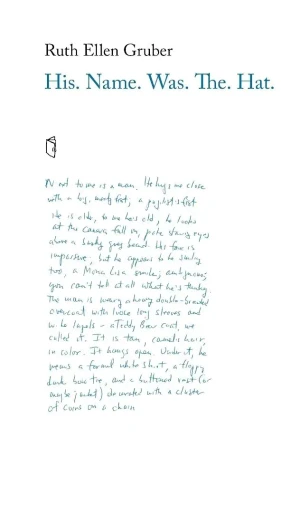 Ruth Ellen Gruber
His. Name. Was. The. Hat.
Next to me is a man. He hugs me close
with a big, meaty fist, a pugilist's fist
He is older, to me he's old, he looks
at the camera full on, pale staring eyes
above a bushy gray beard. His face is
impassive, but he appears to be smiling
too, a Mona Lisa smile; ambiguous;
you can't tell at all what he's thinking.
The man is wearing a heavy double-breasted
overcoat with loose long sleeves and
wide lapels - a Teddy Bear coat, we
called it. It is tan, camel's hair,
in color. It hangs open. Under it, he
wears a formal white shirt, a floppy
dark bow tie, and a buttoned vest (or
maybe jacket) decorated with a cluster
of coins on a chain